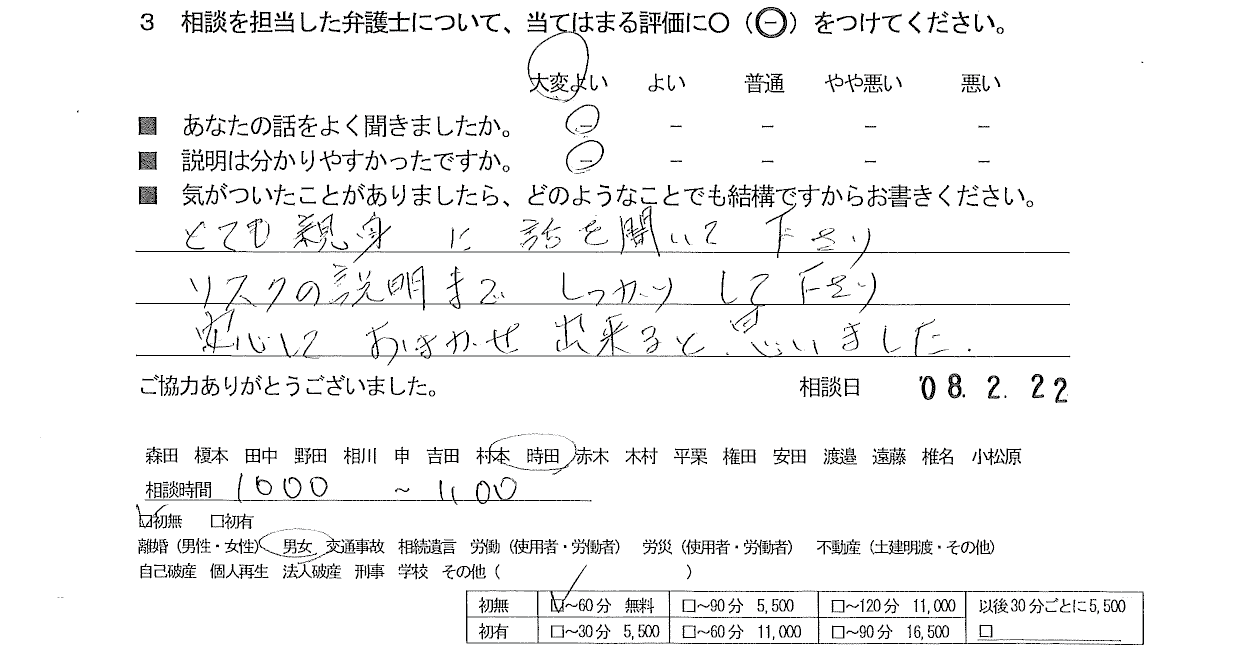 3 相談を担当した弁護士について、当てはまる評価に〇（㊀）をつけてください。
大変よい よい 普通 やや悪い 悪い
■ あなたの話をよく聞きましたか。 － － － － －
■ 説明は分かりやすかったですか。 － － － － －
■ 気がついたことがありましたら、どのようなことでも結構ですからお書きください。
とても親身に話を聞いて下さり
リスクの説明まで しっかりして下さり
安心しておまかせ出来ると思いました.
ご協力ありがとうございました。 相談日 '08. 2. 22
森田 榎本 田中 野田 相川 申 吉田 村本 時田 赤木 木村 平栗 権田 安田 渡邉 遠藤 椎名 小松原
相談時間 1000 ～ 11,00
☑初無 □初有
離婚（男性・女性） 男女 交通事故 相続遺言 労働（使用者・労働者） 労災（使用者・労働者） 不動産（土建明渡・その他）
自己破産 個人再生 法人破産 刑事 学校 その他（ ）
初無 ☑～60分 無料 □～90分 5,500 □～120分 11,000 以後30分ごとに5,500
初有 □～30分 5,500 □～60分 11,000 □～90分 16,500 □